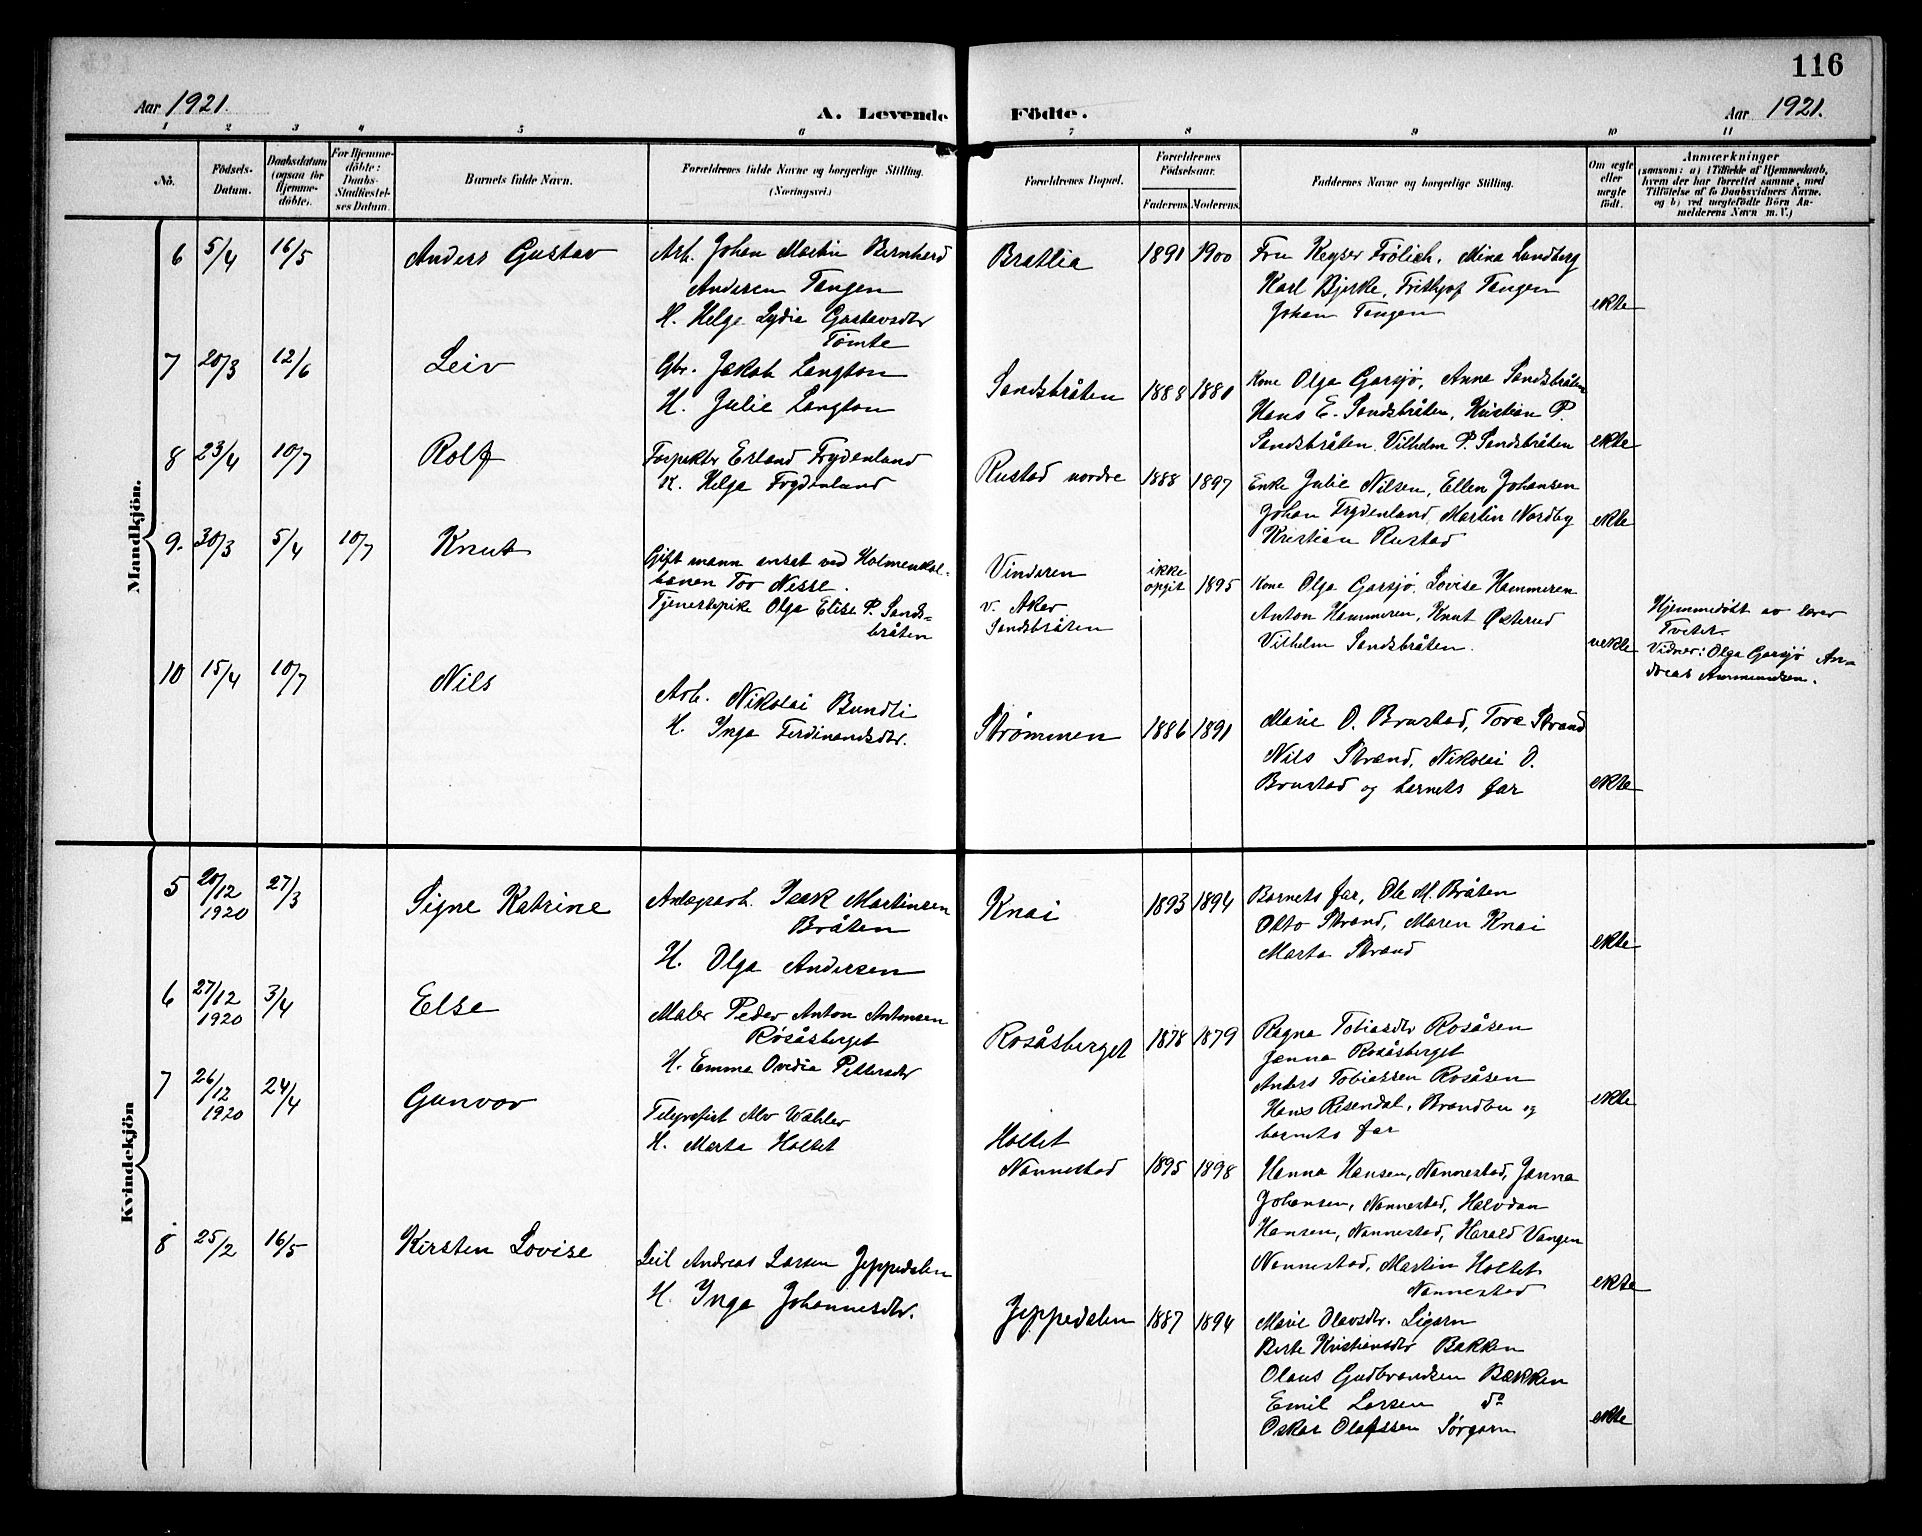 116
Aar 1921.
A. Levende Födte.
Aar 1921.
1 2 3 4 5 6 7 8 9 10 11
No.
Födsels-
Datum.
Daabsdatum
(ogsaa for
Hjemme-
döbte).
For Hjemme-
döbte:
Daabs-
Stadfæstel-
ses Datum.
Barnets fulde Navn.
Forældrenes fulde Navne og borgerlige Stilling.
(Næringsvei.)
Forældrenes Bopæl.
Forældrenes
Födselsaar.
Faderens. Moderens.
Faddernes Navne og borgerlige Stilling.
Om ægte
eller
uægte
födt.
Anmærkninger
(saasom: a) i Tilfælde af Hjemmedaab,
hvem der har forrettet samme, med
Tilföielse af to Daabsvidners Navne,
og b) ved uægtefödte Börn An-
melderens Navn m. V.)
Mandkjön.
6 5/4 16/5 Anders Gustav
Arb. Johan Martin Bernhard
Andersen Tangen
H. Helga Lydia Gustavsdtr
Tømte
Bratlia 1891 1900
Fru Keyser Frölich, Mina Sandberg
Karl Bjerke, Frithjof Tangen
Johan Tangen
ekte
7 20/3 12/6 Leiv
Gbr. Jakob Langton
H. Julie Langton
Sandsbråten 1888 1880
Kone Olga Garsjø, Anna Sandsbråten
Hans E. Sandsbråten, Kristian P.
Sandsbråten, Vilhelm P. Sandsbråten
ekte
8 23/4 10/7 Rolf
Erland Frydenland
H. Helga Frydenlund
Rustad nordre 1888 1897
Enke Julie Nilsen, Ellen Johansen
Johan Frydenland, Martin Nordby
Kristian Rustad
ekte
9. 30/3 5/4 10/7 Knut
Gift mann ansat ved Holmenkol-
banen Tor Nesse.
Tjenestepike Olga Elise P. Sands-
bråten
Vinderen
v. Aker
Sandsbråten
ikke
opgit
1895
Kone Olga Garsjø, Lovise Hammeren
Anton Hammeren, Knut Østerud
Vilhelm Sandsbråten.
uekte
Hjemmedøbt av lærer
Tveter
Vidner: Olga Garsjø An-
dreas Ammundsen.
10 15/4 10/7 Nils
Arb. Nikolai Bundli
H. Inga Ferdinandsdtr.
Strømmen 1886 1891
Marie O. Brustad, Tora Strand
Nils Strand, Nikolai O.
Brustad og barnets far
ekte
Kvindekjön
5 20/12 1920 27/3 Signe Katrine
Anlegsarb. Isak Martinsen
Bråten
H. Olga Andersen
Knai 1893 1894
Barnets far, Ole M. Bråten
Otto Strand, Maren Knai
Marta Strand
ekte
6 27/12 1920 3/4 Else
Maler Peder Anton Antonsen
Rosåsberget
H. Emma Ovidia Pettersdtr
Rosåsberget 1878 1879
Ragna Tobiasdtr Rosåsen
Janna Rosåsberget
Anders Tobiassen Rosåsen
Hans Risendal, Brandbu og
barnets far
ekte
7 26/12 1920 24/4 Gunvor
Telegrafist Alv Wahler
H. Marta Holtet
Holtet
Nannestad 1895 1898
Hanna Hansen, Nannestad, Janna
Johansen, Nannestad, Halvdan
Hansen, Nannestad, Harald Vangen
Nannestad, Martin Holtet
Nannestad
ekte
8 25/2 16/5 Kirsten Lovise
Leil Andreas Larsen Jeppedalen
H. Inga Johannesdtr.
Jeppedalen 1887 1894
Marie Olavsdtr. Ligarn
Berte Kristiansdtr Bakken
Olaus Gudbrandsen Bakken
Emil Larsen do
Oskar Olafssen Sørgarn
ekte